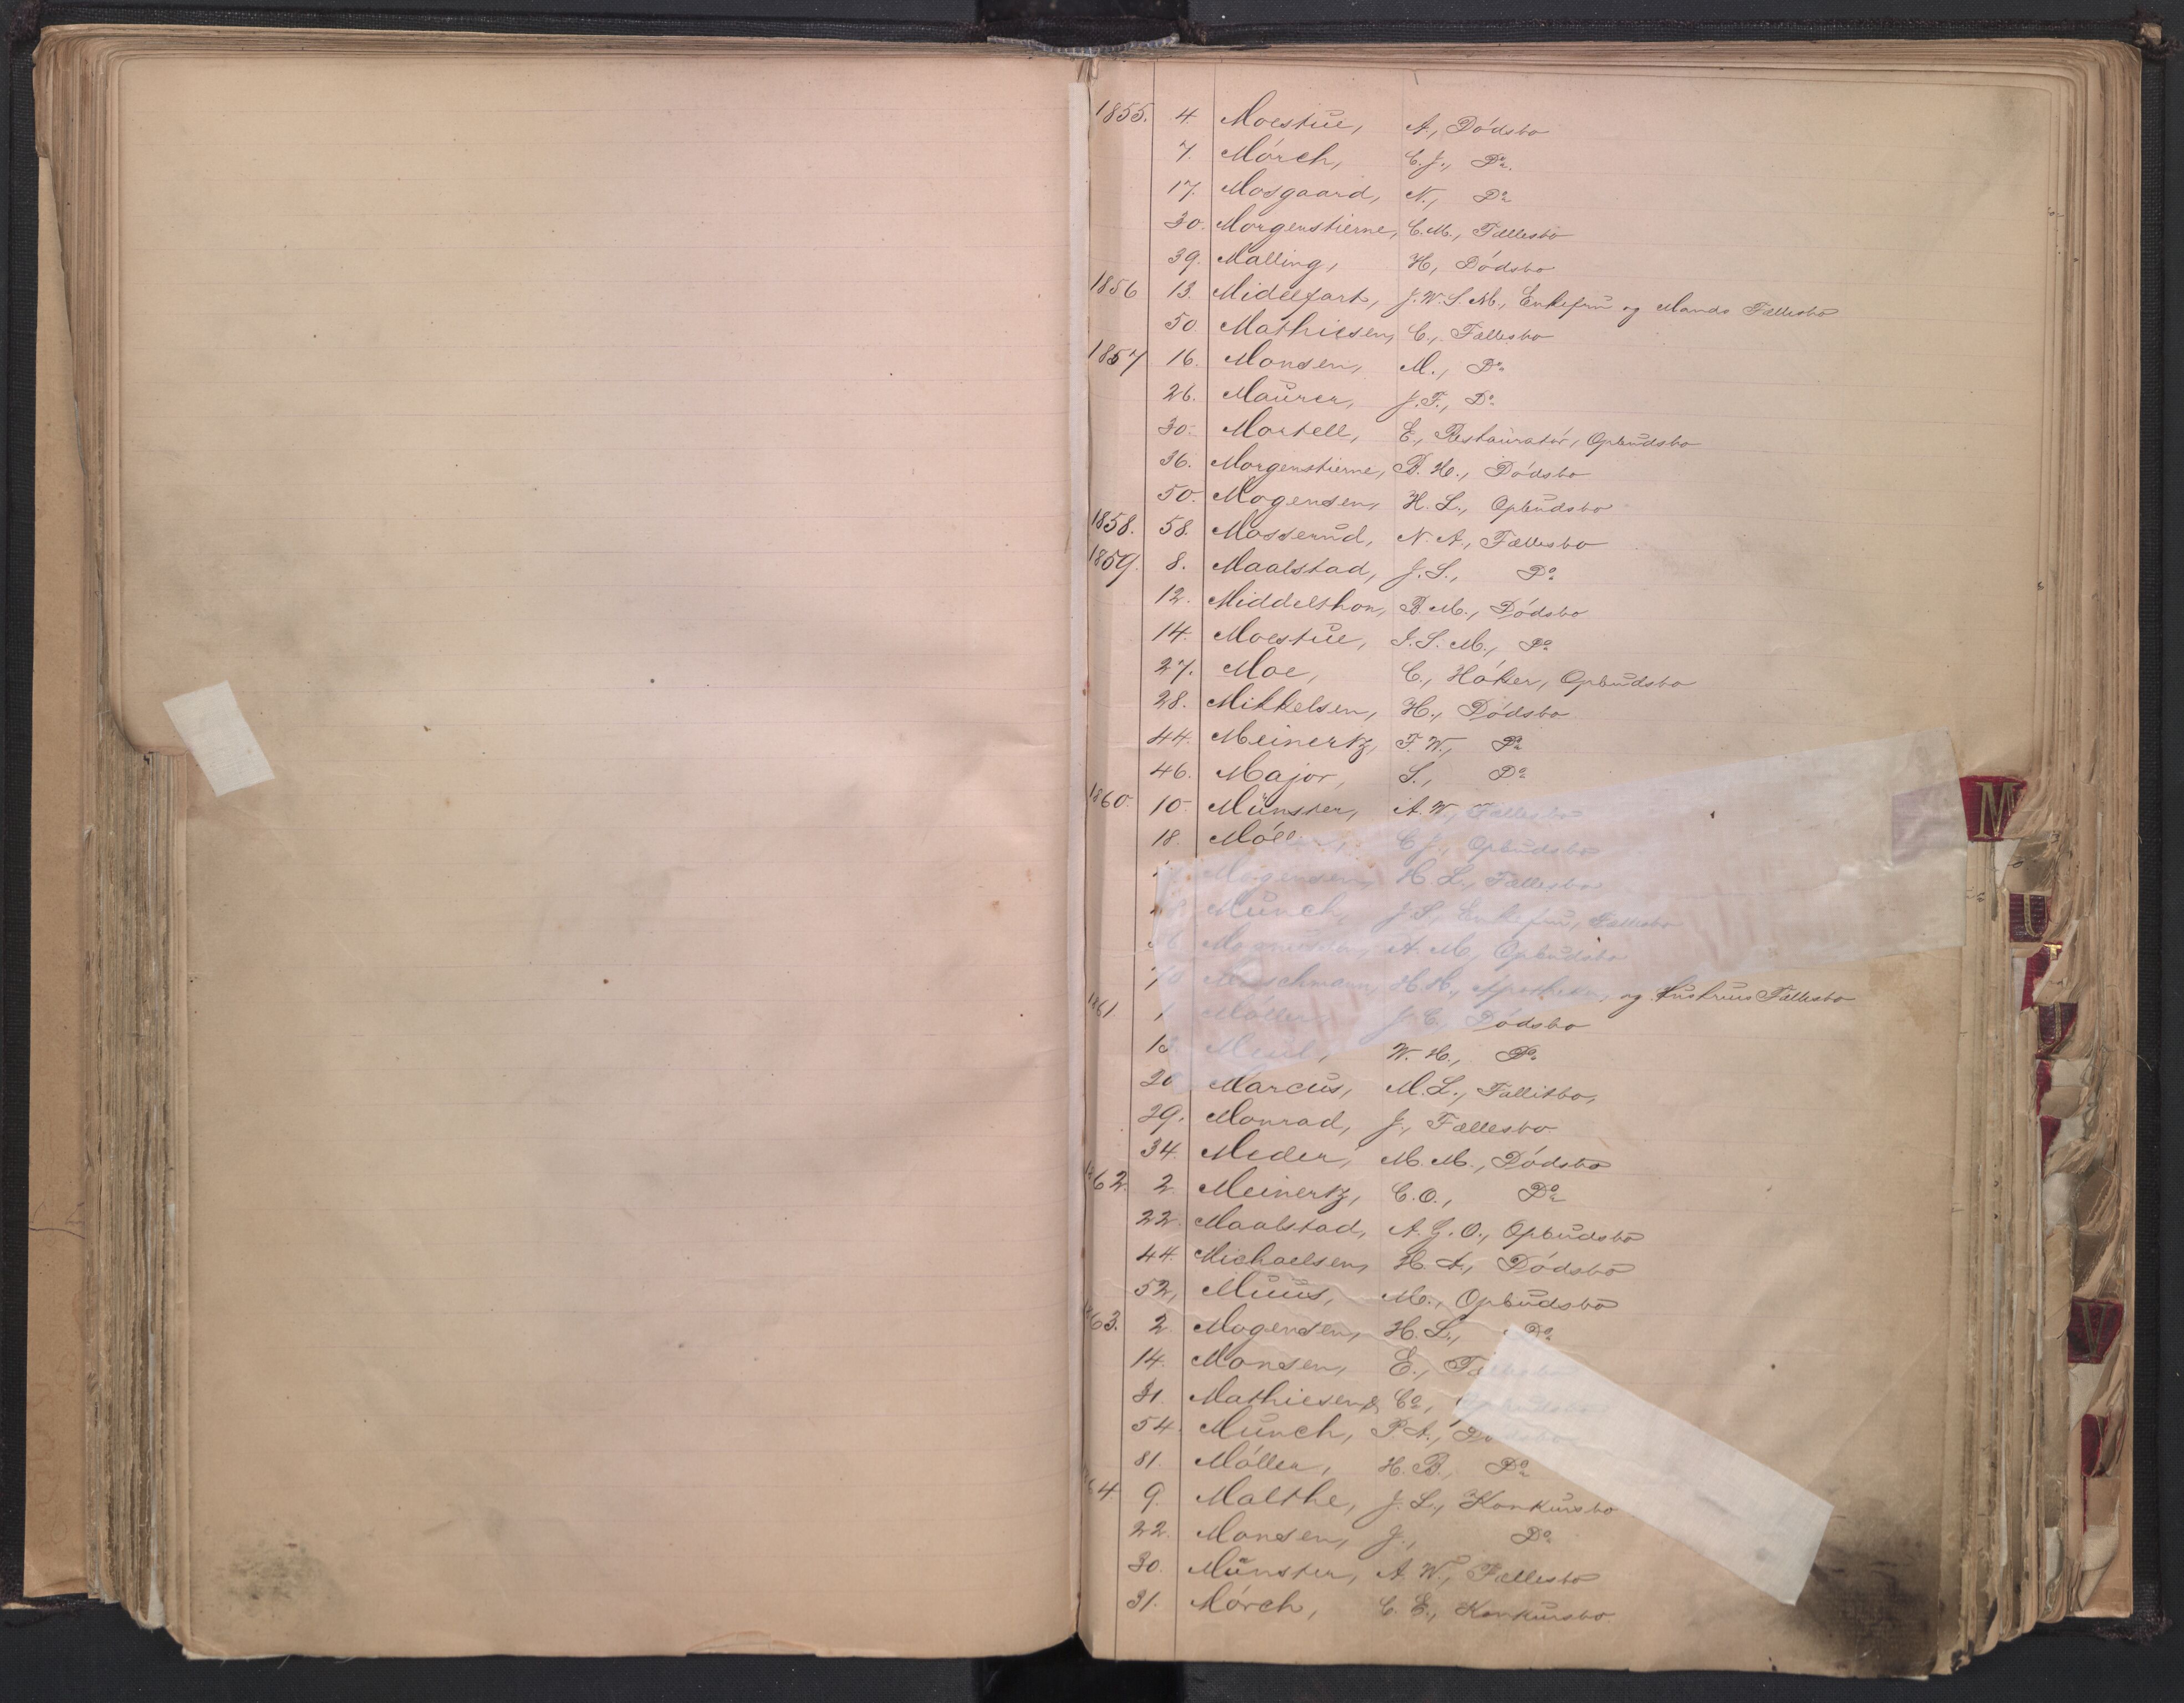 1855. 4. Moestue, A., Dödsbo
7. Mörch, C. J., Do.
17. Mosgaard, N., Do
30. Morgenstierne, C. M., Fællesbo
39. Malling, H., Dödsbo
1856 13. Midelfart, J. W. S. M., Enkefru og Mands Fællesbo
50. Mathiesen, C., Fællesbo
1857 16. Monsen, M., Do
26. Maurer, J. F., Do
30. Mortell, E., Restauratör, Opbudsbo
36. Morgenstierne, B. H., Dödsbo
50. Mogensen, H. L., Opbudsbo
1858. 58. Mosserud, N. A., Fællesbo
1859. 8. Maalstad, J. S., Do
12. Middelthon, B. M., Dödsbo
14. Moestue, I. S. M., Do
27. Moe, C., Höker, Opbudsbo
28. Mikkelsen, H., Dödsbo
44. Meinertz, F. W., Do
46. Major, S., Do
1860. 10. Münster, A. W., Fællesbo
18. Möller, C. J., Opbudsbo
Mogensen, H. L., Fællesbo
Munch, J. S., Enkefru, Fællesbo
A. M., Opbudsbo
H. H., Apotheker, og Hustrues Fællesbo
1861 1. Möller, J. C., Dödsbo
13. W. H., Do
20. Marcus, M. L., Fallitbo,
29. Monrad, J., Fællesbo
34. Meder, M. M., Dödsbo
1862. 2. Meinertz, C. O., Do
22. Maalstad, A. G. O., Opbudsbo
44. Michaelsen, H. A., Dödsbo
52, Muus, M., Opbudsbo
63. 2. Mogensen, H. L., Do
14. Monsen, E., Fællesbo
31. Mathiesen & Co, Opbudsbo
54. Munch, P. A., Dödsbo
81. Möller, H. B., Do
64. 9. Malthe, J. L., Konkursbo
22. Monsen, J., Do
30. Münster, A. W., Fællesbo
31. Mörch, C. E., Konkursbo
M
U
V